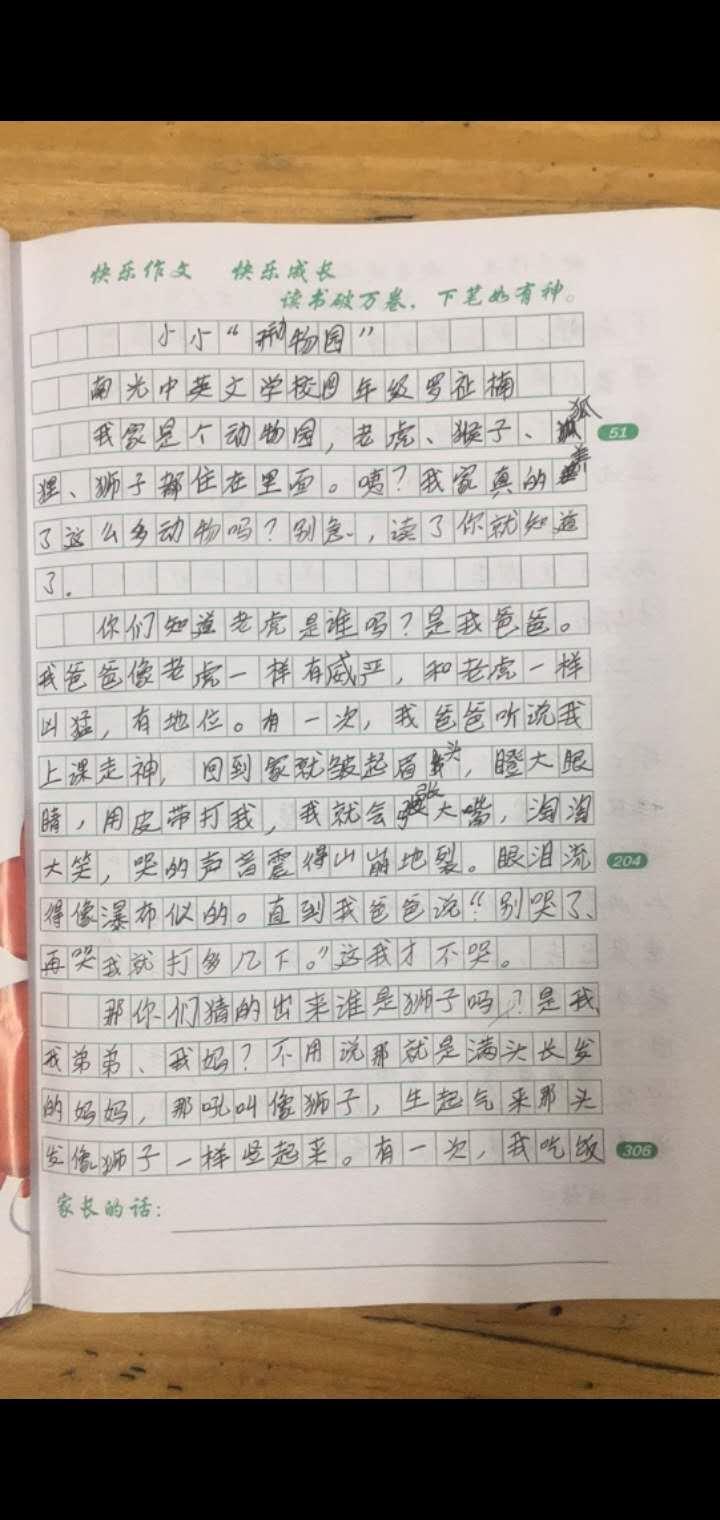 快乐作文 快乐成长
读书破万卷，下笔如有神。
小小“动物园”
南光中英文学校四年级罗祉楠
我家是个动物园，老虎、猴子、狐
51
狸、狮子都住在里面。咦？我家真的养
了这么多动物吗？别急，读了你就知道
了.
你们知道老虎是谁吗？是我爸爸。
我爸爸像老虎一样有威严，和老虎一样
凶猛，有地位。有一次，我爸爸听说我
上课走神，回到家就皱起眉头，瞪大眼
睛，用皮带打我，我就会张大嘴，淘淘
大笑，哭的声音震得山崩地裂。眼泪流
204
得像瀑布似的。直到我爸爸说“别哭了、
再哭我就打多几下。”这我才不哭。
那你们猜的出来谁是狮子吗？是我
我弟弟、我妈？不用说那就是满头长发
的妈妈，那吼叫像狮子，生起气来那头
发像狮子一样竖起来。有一次，我吃饭
306
家长的话：